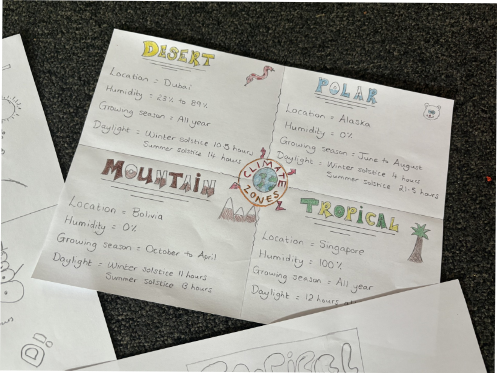 DESERT
Location = Dubai
Humidity = 23% to 89%
Growing season = All year
Daylight = Winter solstice 10.5 hours
Summer solstice 14 hours
POLAR
Location = Alaska
Humidity = 0%
Growing season = June to August
Daylight = Winter solstice 4 hours
Summer solstice 21.5 hours
CLIMATE
ZONES
MOUNTAIN
Location = Bolivia
Humidity = 0%
Growing season = October to April
Daylight = Winter solstice 11 hours
Summer solstice 13 hours
TROPICAL
Location = Singapore
Humidity = 100%
Growing season = All year
Daylight = 12 hours